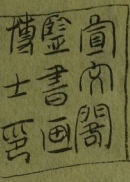 宣文閣
鑒書画
博士印